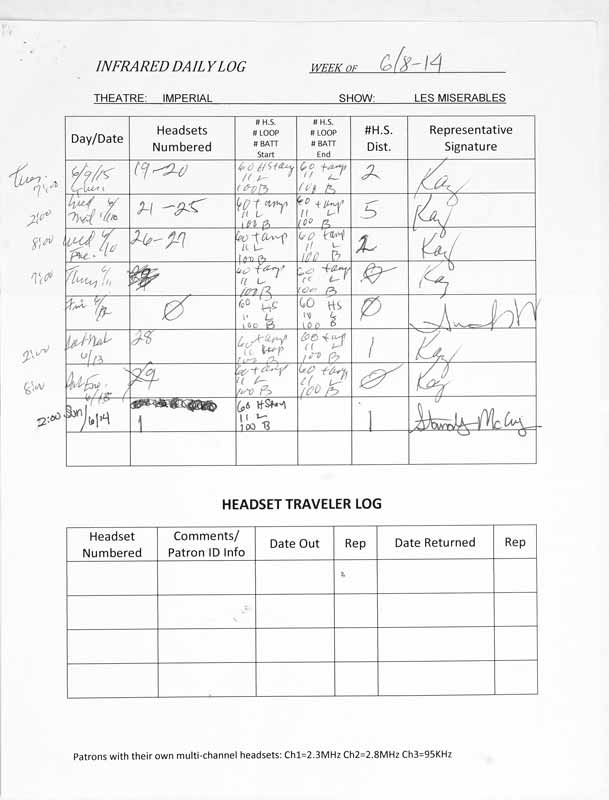 INFRARED DAILY LOG WEEK OF 6/8-14
THEATRE: IMPERIAL SHOW: LES MISERABLES
Day/Date
Headsets
Numbered
# H.S.
# LOOP
# BATT
Start
# H.S.
# LOOP
# BATT
End
#H.S.
Dist.
Representative
Signature
Tues.
7:00
6/9/15
19-20
60 H Stay
11 L
100 B
60 + amp
11 L
100 B
2
Kay
2:00
Wed 6/10
Mat
21-25
60 + amp
11 L
100 B
60 + amp
11 L
100 B
5
Kay
8:00
Wed 6/10
Eve.
26-27
60 + amp
11 L
100 B
60 + amp
11 L
100 B
2
Kay
7:00
Thurs 6/11
60 + amp
11 L
100 B
60 + amp
11 L
100 B
Ø
Kay
Fri 6/12
Ø
60 HS
11 L
100 B
60 HS
100 B
Ø
2:00
Sat Mat
6/13
28
60 + amp
11 Loop
100 B
60 + amp
11 L
100 B
1
Kay
8:00
Sat Eve.
29
60 + amp
11 L
100 B
60 + amp
11 L
100 B
Ø
Kay
2:00 Sun
6/14
1
60 H Stay
11 L
100 B
1
HEADSET TRAVELER LOG
Headset
Numbered
Comments/
Patron ID Info
Date Out
Rep
Date Returned
Rep
Patrons with their own multi-channel headsets: Ch1=2.3MHz Ch2=2.8MHz Ch3=95KHz